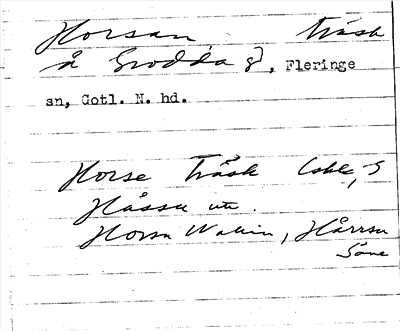 Horsan träsk
å Grodda 8, Fleringe
sn, Gotl. N. hd.
Horse Träsk
Håssu ute.
Horsu Wallin, Hårrsu
Säve